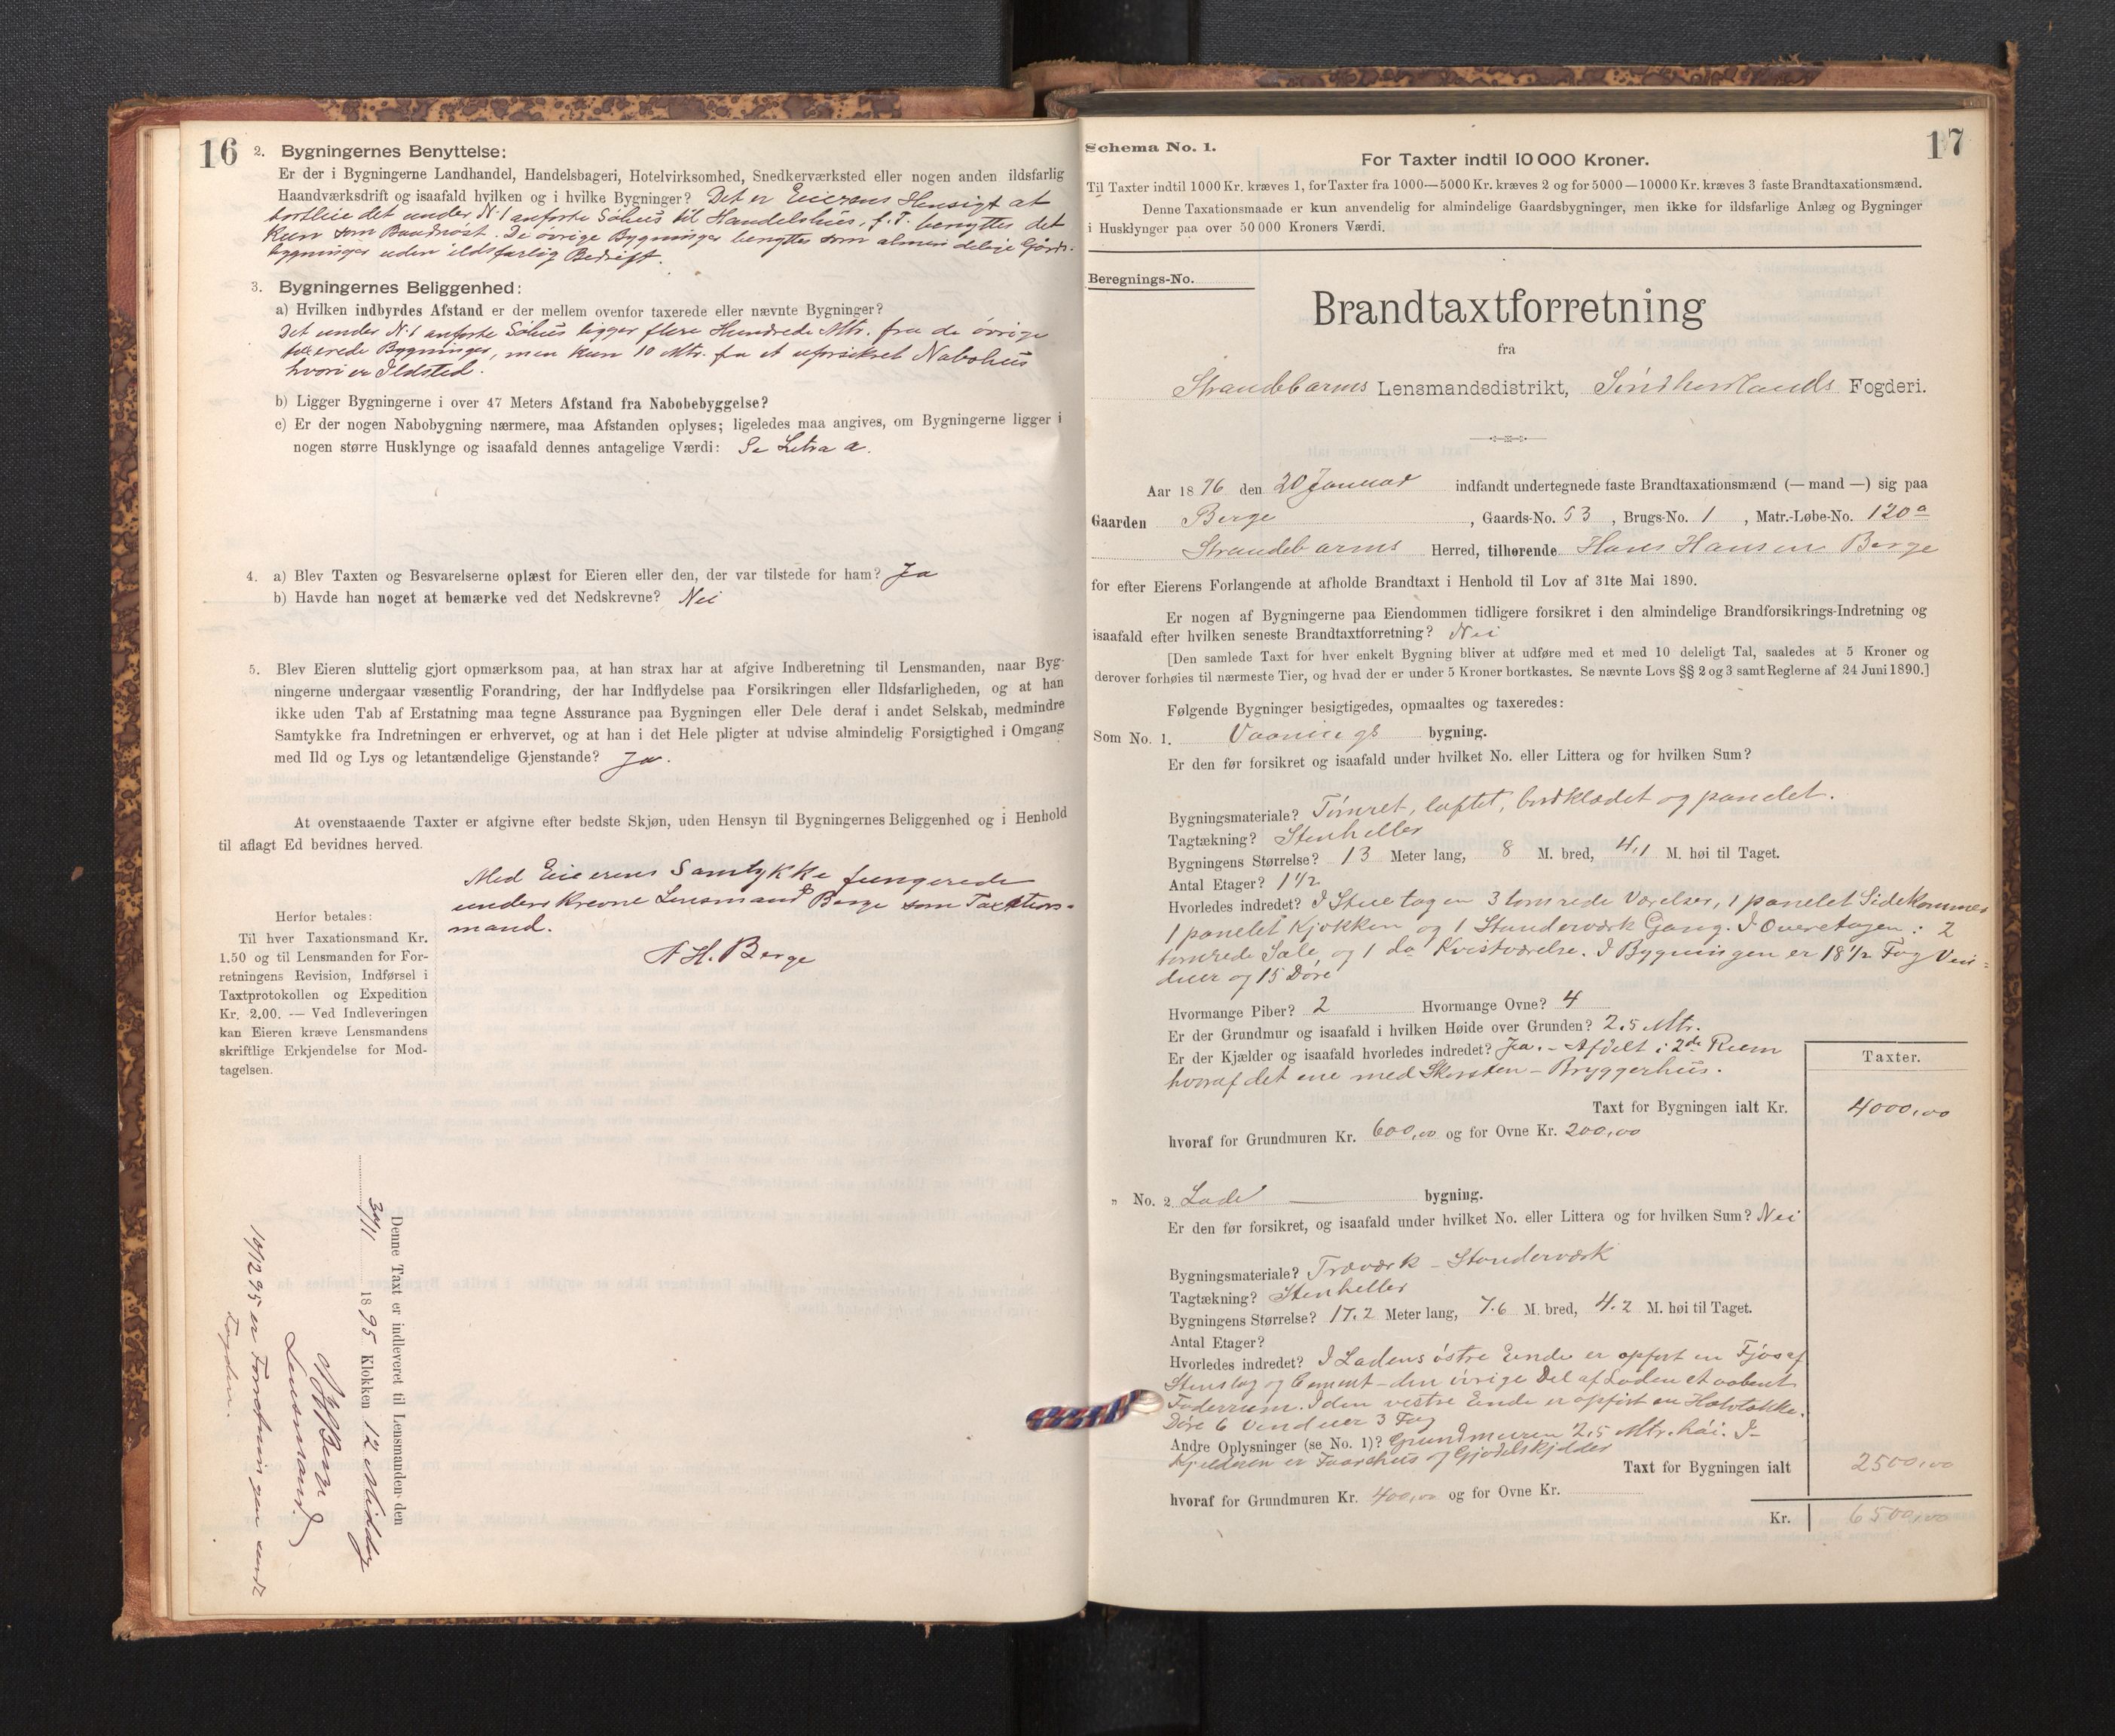 16
2. Bygningernes Benyttelse:
Er der i Bygningerne Landhandel, Handelsbageri, Hotelvirksomhed, Snedkerværksted eller nogen anden ildsfarlig
Haandværksdrift og isaafald hvilken og i hvilke Bygninger? Det er Eierens Hensigt at
bortleie det under N:1 anførte Søhus til Handelshus, f. T. benyttes det
kun som Baadnøst. De øvrige Bygninger benyttes som almindelige Gårds-
bygninger uden ildsfarlig Bedrift.
3. Bygningernes Beliggenhed:
a) Hvilken indbyrdes Afstand er der mellem ovenfor taxerede eller nævnte Bygninger?
Det under N:1 anførte Søhus ligger flere Hundrede Mtr. fra de øvrige
taxerede Bygninger, men kun 10 Mtr. fra et uforsikret Nabohus
hvori er Ildsted.
b) Ligger Bygningerne i over 47 Meters Afstand fra Nabobebyggelse?
c) Er der nogen Nabobygning nærmere, maa Afstanden oplyses; ligeledes maa angives, om Bygningerne ligger i
nogen større Husklynge og isaafald dennes antagelige Værdi: Se Litra a.
4. a) Blev Taxten og Besvarelserne oplæst for Eieren eller den, der var tilstede for ham? Ja
b) Havde han noget at bemærke ved det Nedskrevne? Nei
5. Blev Eieren sluttelig gjort opmærksom paa, at han strax har at afgive Indberetning til Lensmanden, naar Byg-
ningerne undergaar væsentlig Forandring, der har Indflydelse paa Forsikringen eller Ildsfarligheden, og at han
ikke uden Tab af Erstatning maa tegne Assurance paa Bygningen eller Dele deraf i andet Selskab, medmindre
Samtykke fra Indretningen er erhvervet, og at han i det Hele pligter at udvise almindelig Forsigtighed i Omgang
med Ild og Lys og letantændelige Gjenstande? Ja.
At ovenstaaende Taxter er afgivne efter bedste Skjøn, uden Hensyn til Bygningernes Beliggenhed og i Henhold
til aflagt Ed bevidnes herved.
Med Eierens Samtykke fungerede
underskrevne Lensmand Berge som Taxations-
mand.
A H. Berge
Herfor betales:
Til hver Taxationsmand Kr.
1.50 og til Lensmanden for For-
retningens Revision, Indførsel i
Taxtprotokollen og Expedition
Kr. 2.00. — Ved Indleveringen
kan Eieren kræve Lensmandens
skriftlige Erkjendelse for Mod-
tagelsen.
Denne Taxt er indleveret til Lensmanden den
30/11 1895 Klokken 12 Middag
Berge
Lensmand
10/12 95 er Forretningen sendt
Fogden.
17
Schema No. 1.
For Taxter indtil 10 000 Kroner.
Til Taxter indtil 1000 Kr. kræves 1, for Taxter fra 1000—5000 Kr. kræves 2 og for 5000—10000 Kr. kræves 3 faste Brandtaxationsmænd.
Denne Taxationsmaade er kun anvendelig for almindelige Gaardsbygninger, men ikke for ildsfarlige Anlæg og Bygninger
i Husklynger paa over 50 000 Kroners Værdi.
Beregnings-No.
Brandtaxtforretning
fra
Strandebarms Lensmandsdistrikt, Søndhordlands Fogderi.
Aar 1876 den 20 Januar indfandt undertegnede faste Brandtaxationsmænd (— mand —) sig paa
Gaarden Berge , Gaards-No. 53 , Brugs-No. 1 , Matr.-Løbe-No. 120a
Strandebarms Herred, tilhørende Hans Hansen Berge
for efter Eierens Forlangende at afholde Brandtaxt i Henhold til Lov af 31te Mai 1890.
Er nogen af Bygningerne paa Eiendommen tidligere forsikret i den almindelige Brandforsikrings-Indretning og
isaafald efter hvilken seneste Brandtaxtforretning? Nei
[Den samlede Taxt for hver enkelt Bygning bliver at udføre med et med 10 deleligt Tal, saaledes at 5 Kroner og
derover forhøies til nærmeste Tier, og hvad der er under 5 Kroner bortkastes. Se nævnte Lovs §§ 2 og 3 samt Reglerne af 24 Juni 1890.]
Følgende Bygninger besigtigedes, opmaaltes og taxeredes:
Som No. 1. Vaanings bygning.
Er den før forsikret og isaafald under hvilket No. eller Littera og for hvilken Sum?
Bygningsmateriale? Tømret, loftet, bordklædet og panelet.
Tagtækning? Stenheller
Bygningens Størrelse? 13 Meter lang, 8 M. bred, 4,1 M. høi til Taget.
Antal Etager? 1 1/2
Hvorledes indredet? I Stuetagen 3 tømrede Værelser, 1 panelet Sidekammer
1 panelet Kjøkken og 1 Standerværk Gang. I Overetagen: 2
tømrede Sale, og 1 do Kvistværelse. I Bygningen er 18 1/2 Fag Vin-
duer og 15 Døre
Hvormange Piber? 2 Hvormange Ovne? 4
Er der Grundmur og isaafald i hvilken Høide over Grunden? 2.5 Mtr.
Er der Kjælder og isaafald hvorledes indredet? Ja. - Afdelt i 2de Rum
hvoraf det ene med Skorsten - Bryggerhus.
Taxter.
Taxt for Bygningen ialt Kr. 4000,00
hvoraf for Grundmuren Kr. 600,00 og for Ovne Kr. 200,00
„ No. 2 Lade bygning.
Er den før forsikret, og isaafald under hvilket No. eller Littera og for hvilken Sum? Nei
Bygningsmateriale? Træværk - Standerværk
Tagtækning? Stenheller
Bygningens Størrelse? 17.2 Meter lang, 7.6 M. bred, 4.2 M. høi til Taget.
Antal Etager?
Hvorledes indredet? I Ladens østre Ende er opført en Fjøs af
Stenslag og Cement - den øvrige Del af Laden et aabent
Foderrum. I den vestre Ende er opført en Halvtække.
Døre 6 Vinduer 3 Fag
Andre Oplysninger (se No. 1)? Grundmuren 2,5 Mtr. høi. I
Kjelderen er Faarehus og Gjødselskjelder
Taxt for Bygningen ialt 2500,00
hvoraf for Grundmuren Kr. 400,00 og for Ovne Kr.
Kr. 6500,00